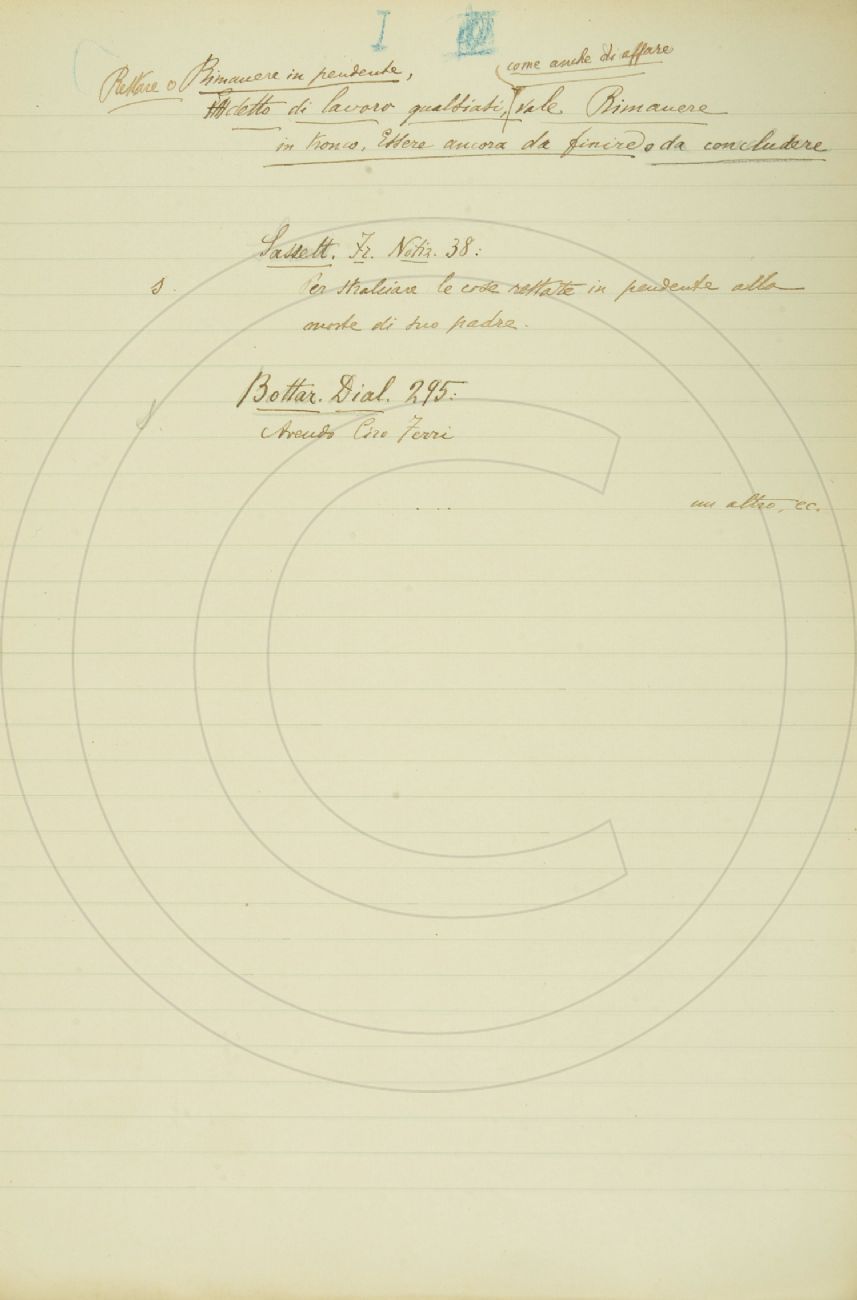 I
come anche di affare
Restare o Rimanere in pendente,
detto di lavoro qualsiasi, vale Rimanere
in tronco, Essere ancora da finire o da concludere
Sassett. Fr. Notiz. 38:
s. Per stralciare le cose restate in pendente alla
morte di suo padre.
Bottar. Dial. 295:
Avendo Ciro Ferri
.... un altro, ec.